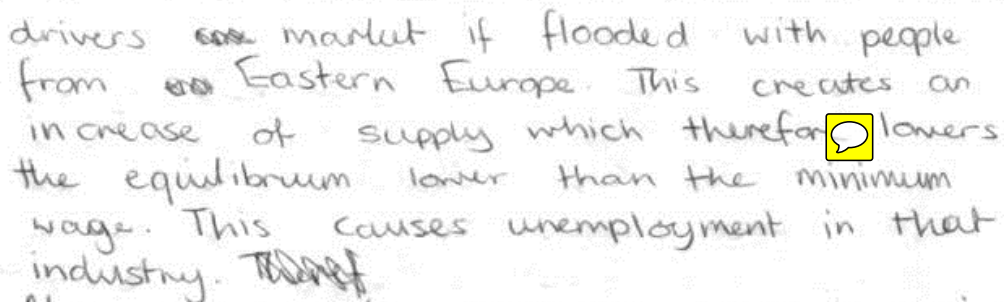 drivers market if flooded with people
from Eastern Europe. This creates an
increase of supply which therefor lowers
the equilibruum lower than the minimum
wage. This causes unemployment in that
industry.